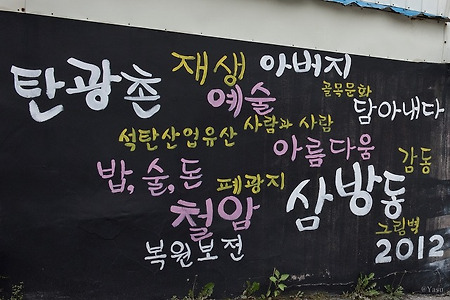 탄광촌 재생 아버지
예술 골목문화
담아내다
석탄산업유산 사람과 사람
아름다움 감동
밥,술,돈 폐광지
철암 삼방동
그림벽
복원보전 2012
@Yasu